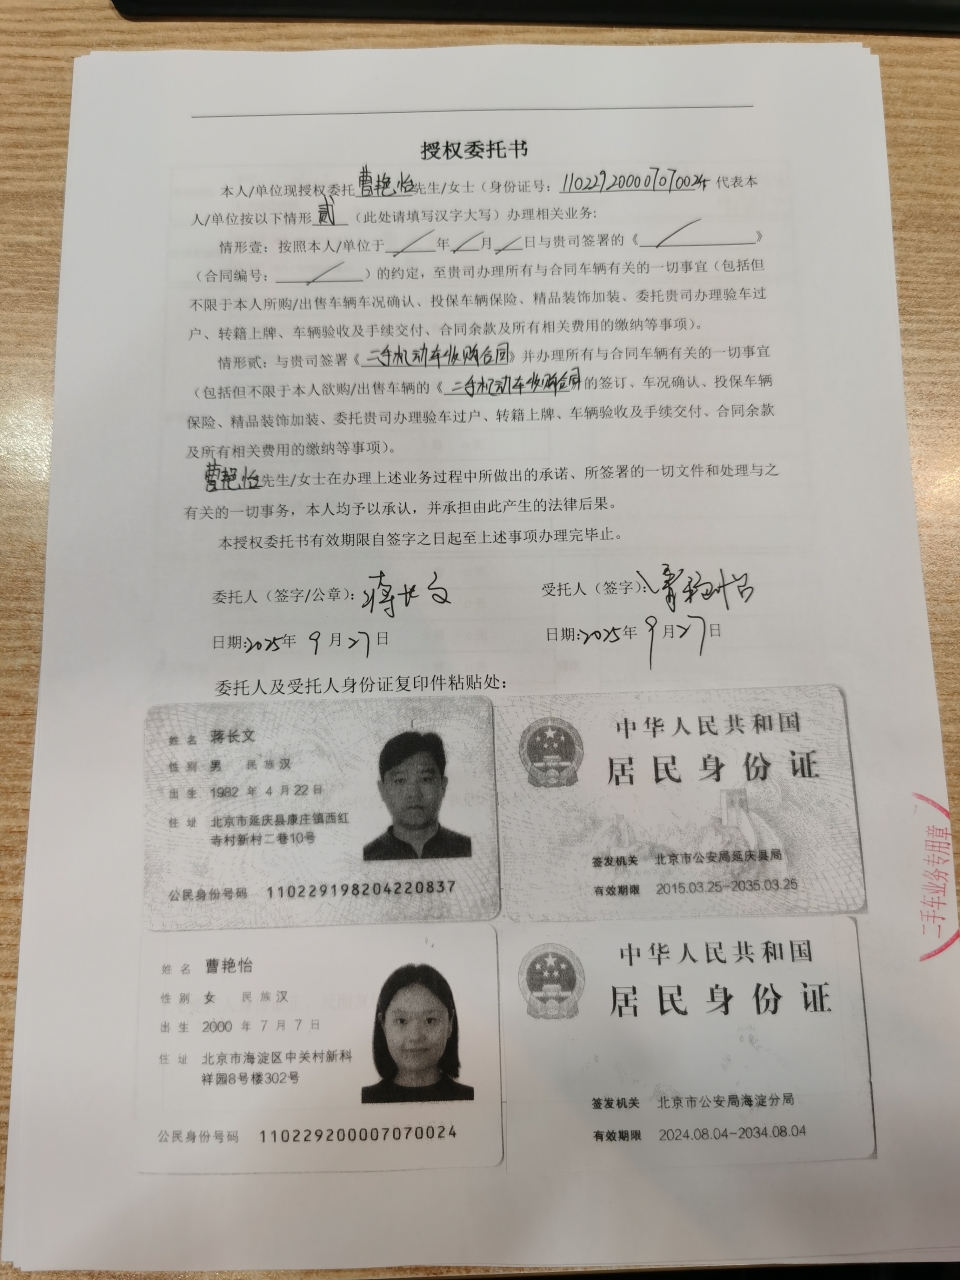 授权委托书
本人/单位现授权委托曹艳怡先生/女士（身份证号：110229200007070024代表本
人/单位按以下情形贰（此处请填写汉字大写）办理相关业务：
情形壹：按照本人/单位于／年／月／日与贵司签署的《／》
（合同编号：／）的约定，至贵司办理所有与合同车辆有关的一切事宜（包括但
不限于本人所购/出售车辆车况确认、投保车辆保险、精品装饰加装、委托贵司办理验车过
户、转籍上牌、车辆验收及手续交付、合同余款及所有相关费用的缴纳等事项）。
情形贰：与贵司签署《二手机动车收购合同》并办理所有与合同车辆有关的一切事宜
（包括但不限于本人欲购/出售车辆的《二手机动车收购合同的签订、车况确认、投保车辆
保险、精品装饰加装、委托贵司办理验车过户、转籍上牌、车辆验收及手续交付、合同余款
及所有相关费用的缴纳等事项）。
曹艳怡先生/女士在办理上述业务过程中所做出的承诺、所签署的一切文件和处理与之
有关的一切事务，本人均予以承认，并承担由此产生的法律后果。
本授权委托书有效期限自签字之日起至上述事项办理完毕止。
委托人（签字/公章）：蒋长文 受托人（签字）：曹艳怡
日期：2025年9月27日 日期：2025年9月27日
委托人及受托人身份证复印件粘贴处：
姓名 蒋长文
性别 男 民族 汉
出生 1982年4月22日
住址 北京市延庆县康庄镇西红
寺村新村二巷10号
公民身份号码 110229198204220837
中华人民共和国
居民身份证
签发机关 北京市公安局延庆县局
有效期限 2015.03.25-2035.03.25
二手车业务专用章
姓名 曹艳怡
性别 女 民族 汉
出生 2000年7月7日
住址 北京市海淀区中关村新科
祥园8号楼302号
公民身份号码 110229200007070024
中华人民共和国
居民身份证
签发机关 北京市公安局海淀分局
有效期限 2024.08.04-2034.08.04